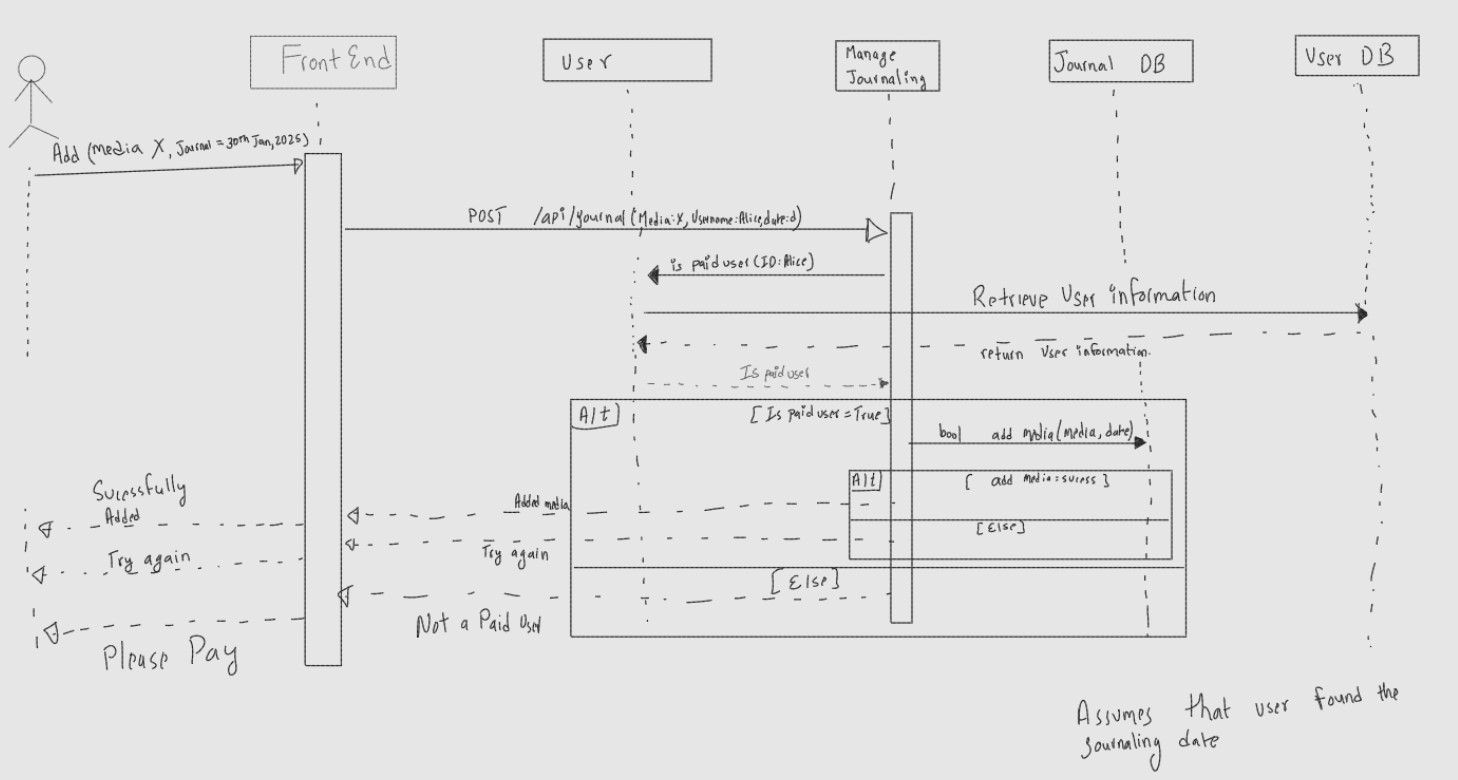 Front End
User
Manage
Journaling
Journal DB
User DB
Add (media X, Journal = 30th Jan, 2025)
POST /api/journal (Media:X, Username:Alice, date:d)
is paid user (ID:Alice)
Retrieve User information
return User information.
Is paid user
Alt
[Is paid user = True]
bool add media (media, date)
Alt
[ add Media = sucess ]
Sucessfully
Added
Added media
[Else]
Try again
Try again
[Else]
Not a Paid User
Please Pay
Assumes that user found the
journaling date